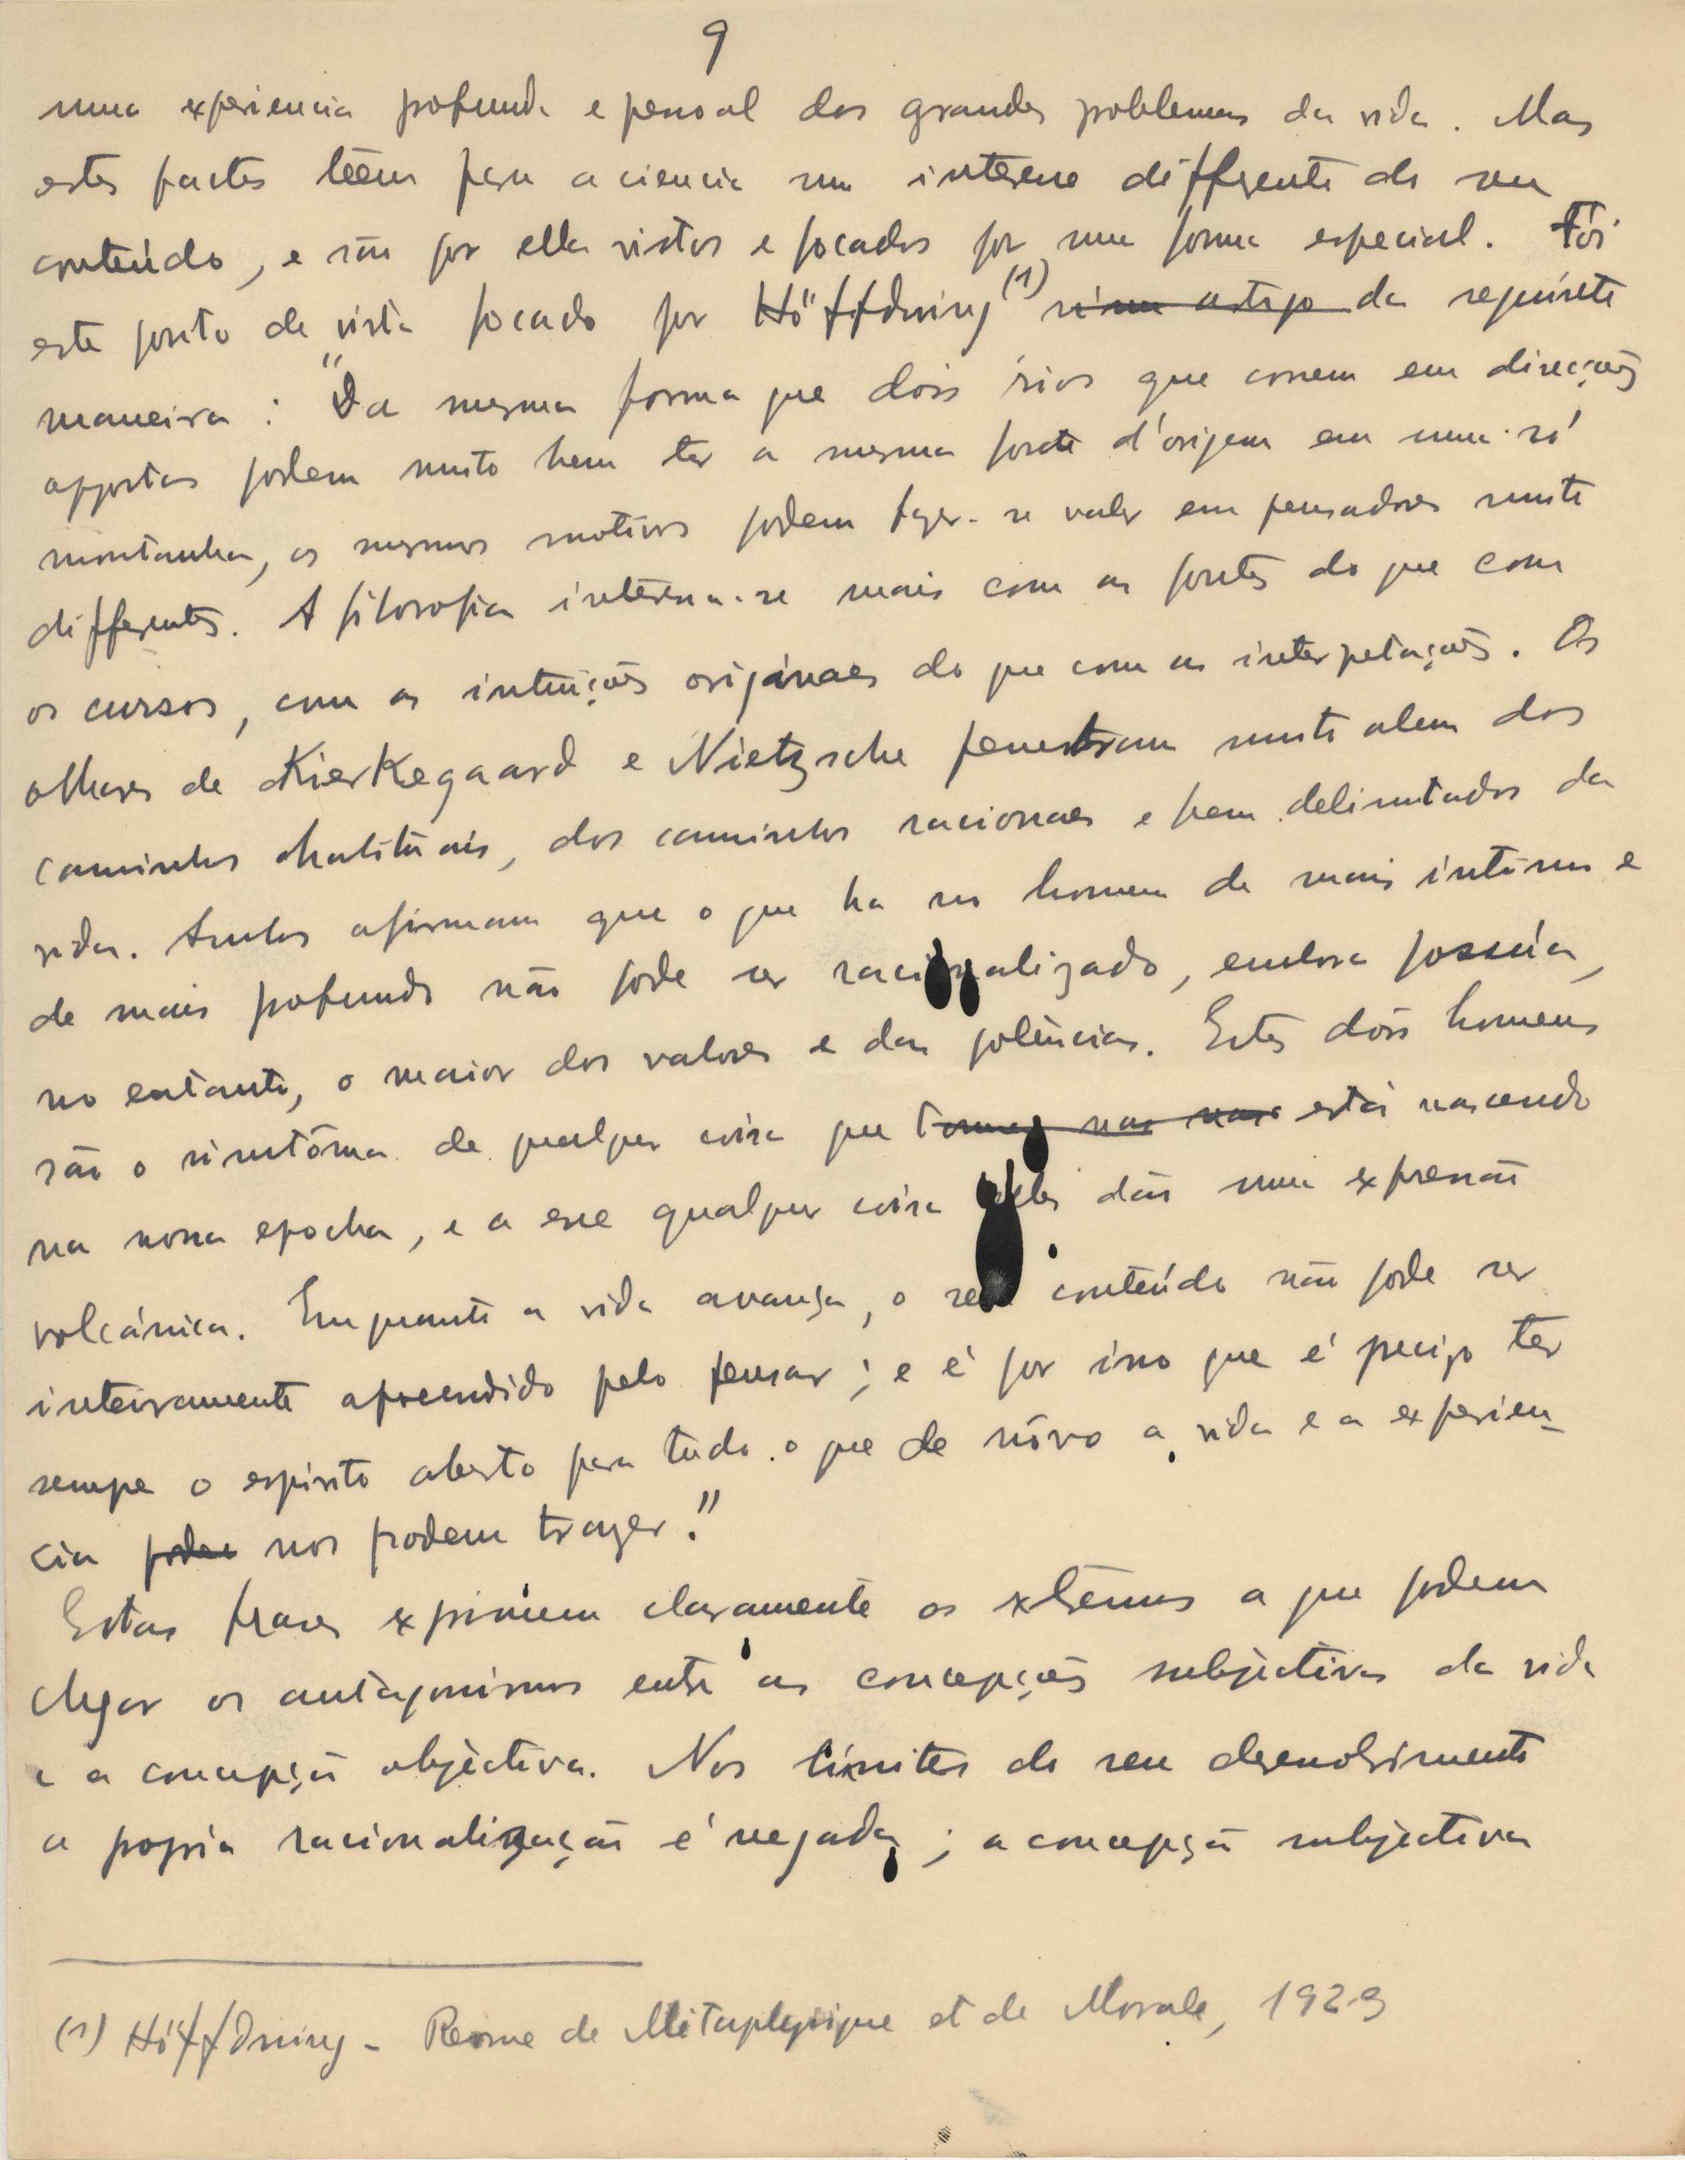 9
uma experiencia profunda e pessoal dos grandes problemas da vida. Mas
estes factos tēem para a ciencia um interesse differente do seu
conteúdo, e são por ella vistos e focados por uma forma especial. Foi
este ponto de vista focado por Höffdning (1) n'um artigo da seguinte
maneira: "Da mesma forma que dois rios que correm em direcções
oppostas podem muito bem ter a mesma fonte d'origem em uma só
montanha, os mesmos motivos podem fazer-se valer em pensadores muito
differentes. A filosofia interessa-se mais com as fontes do que com
os cursos, com as intuições originaes do que com as interpretações. Os
olhares de Kierkegaard e Nietzsche penetram muito alem dos
caminhos habituais, dos caminhos racionaes e bem delimitados da
vida. Ambos afirmam que o que ha no homem de mais intimo e
de mais profundo não pode ser racionalizado, embora possúa,
no entanto, o maior dos valores e das potências. Estes dois homens
são o simtôma de qualquer coisa que está nascendo
na nossa epocha, e a esse qualquer coisa elles dão uma expressão
volcánica. Emquanto a vida avança, o seu conteúdo não pode ser
inteiramente apreendido pelo pensar; e é por isso que é preciso ter
sempre o espirito aberto para tudo o que de nôvo a vida e a experien-
cia podem nos podem trazer."
Estas frases exprimem claramente os extremos a que podem
chegar os antagonismos entre as concepções subjectivas da vida
e a concepção objectiva. Nos límites do seu desenvolvimento
a propria racionalização é negada; a concepção subjectiva
(1) Höffdning - Revue de Métaphysique et de Morale, 1923